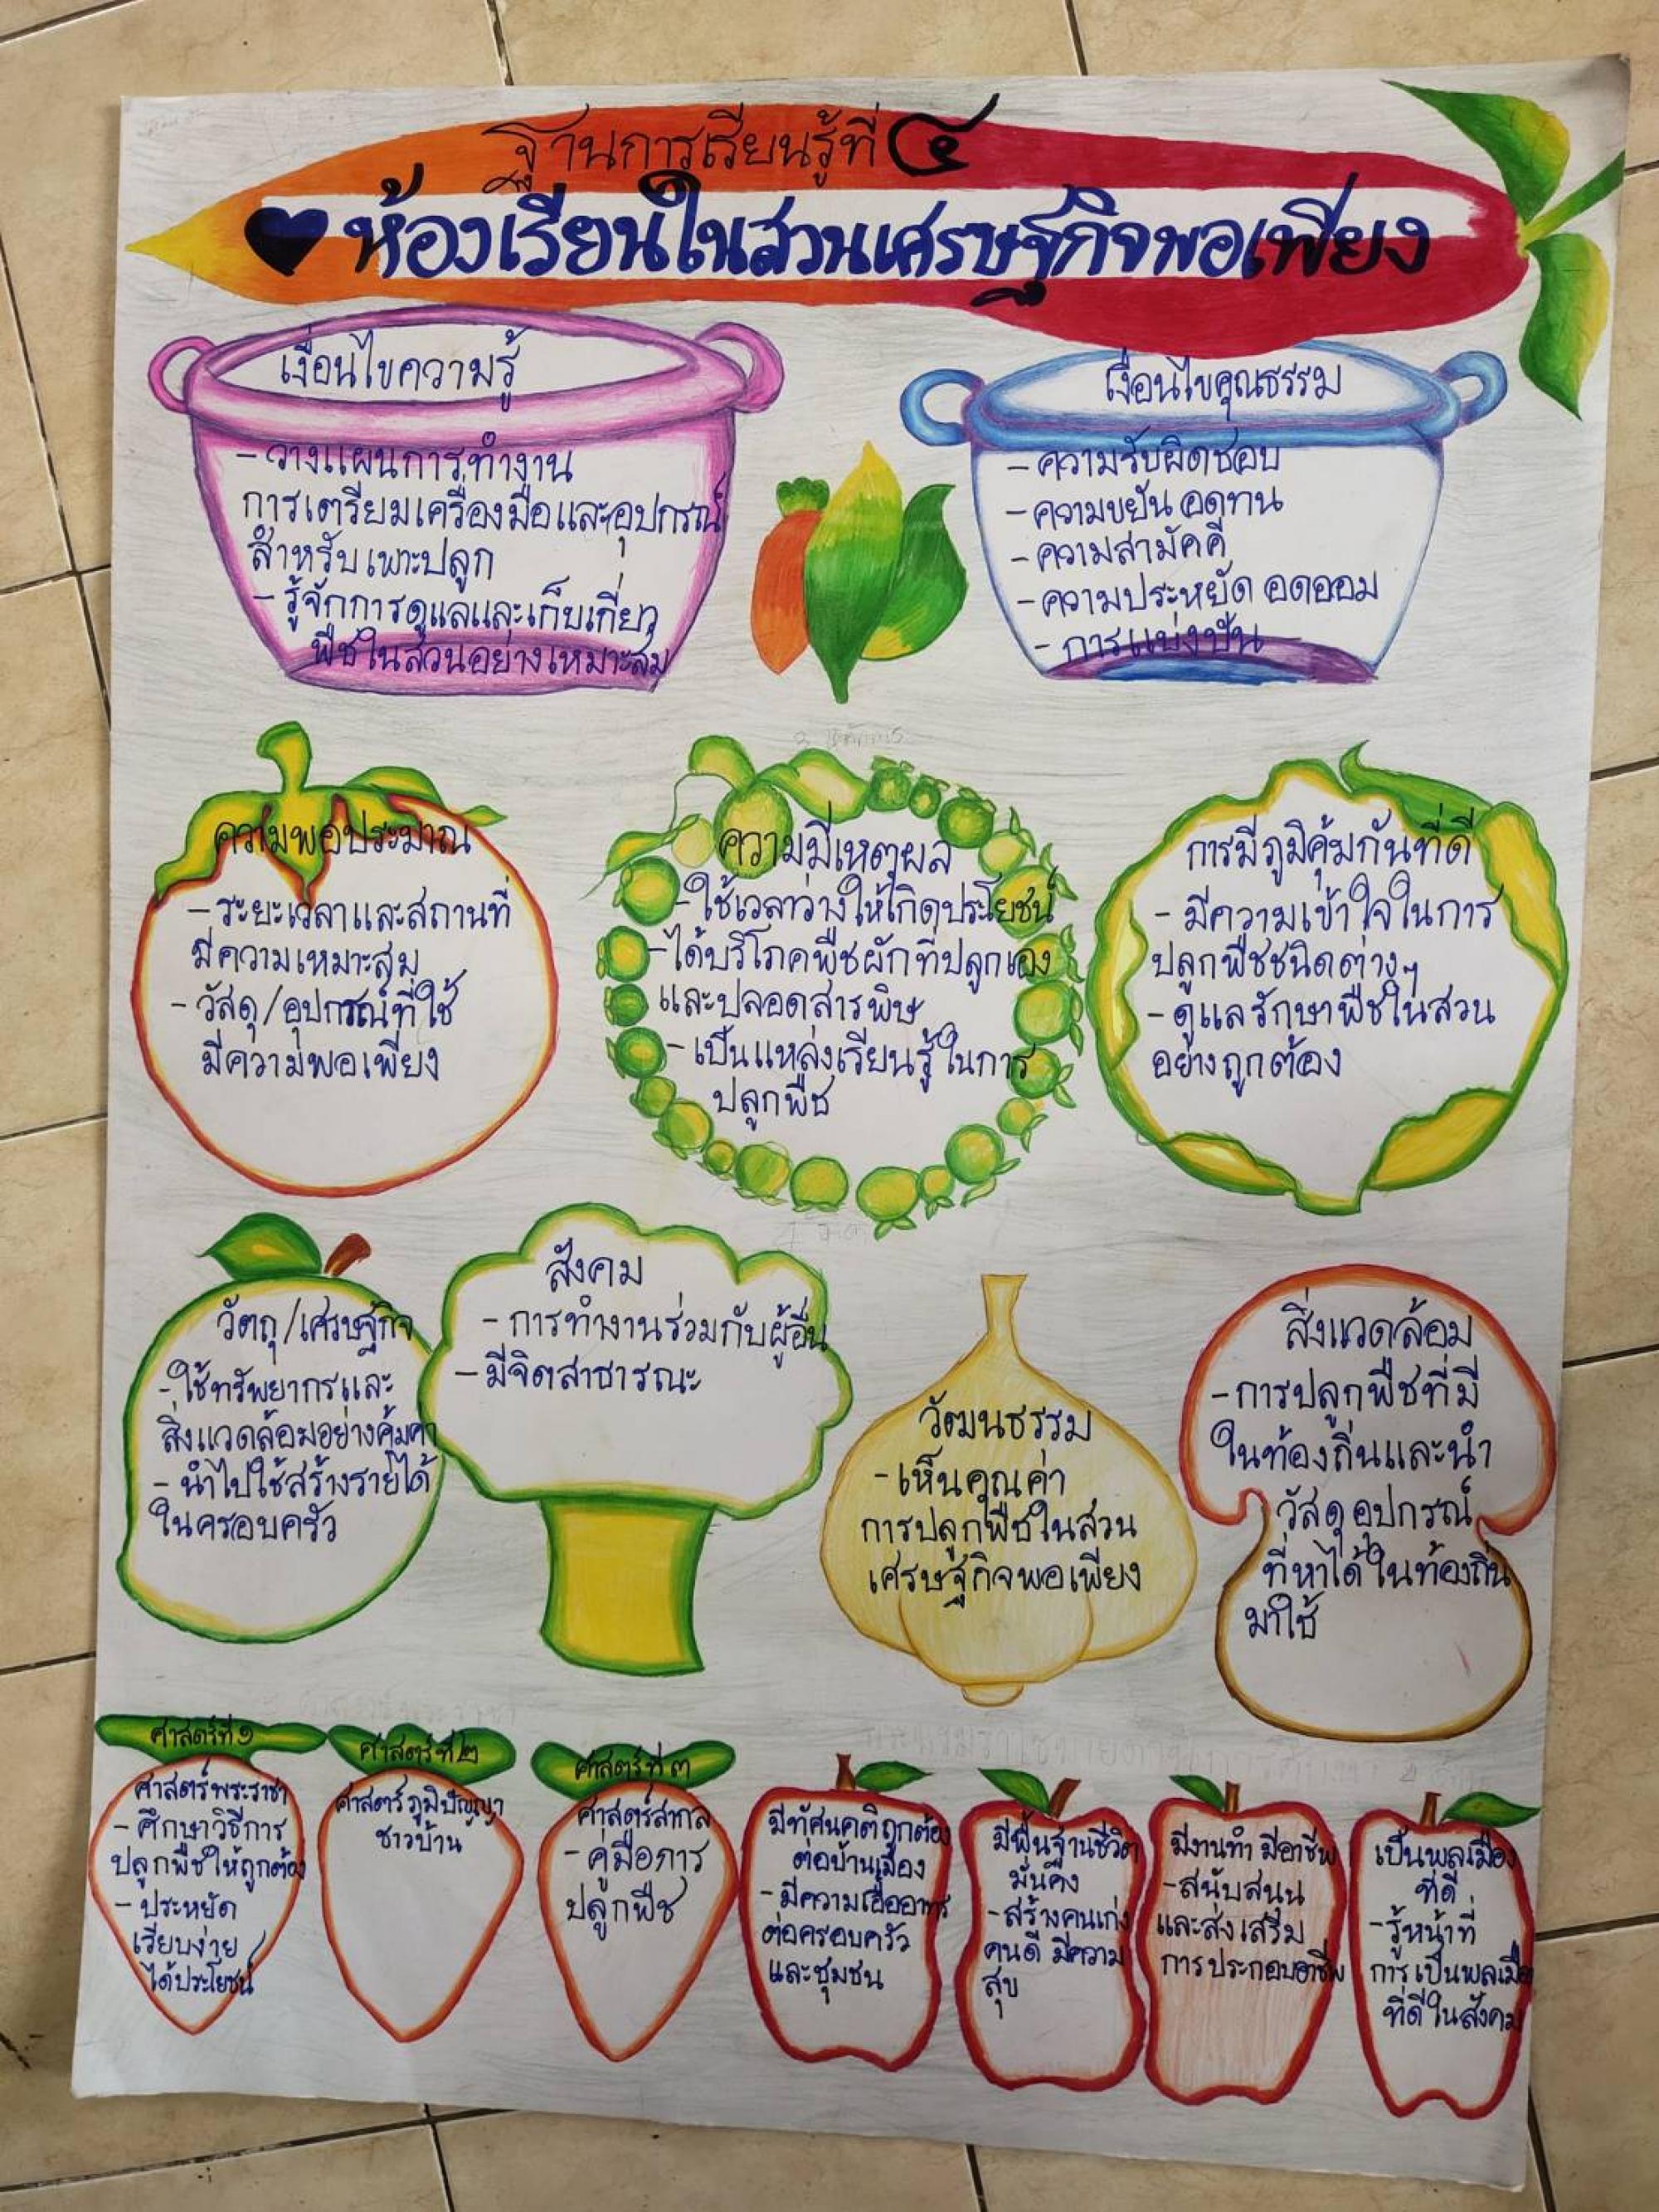 ฐานการเรียนรู้ที่ ๔
ห้องเรียนในสวนเศรษฐกิจพอเพียง
เงื่อนไขความรู้
- วางแผนการทำงาน
การเตรียมเครื่องมือและอุปกรณ์
สำหรับเพาะปลูก
- รู้จักการดูแลและเก็บเกี่ยว
พืชในสวนอย่างเหมาะสม
เงื่อนไขคุณธรรม
- ความรับผิดชอบ
- ความขยัน อดทน
- ความสามัคคี
- ความประหยัด อดออม
- การแบ่งปัน
ความพอประมาณ
- ระยะเวลาและสถานที่
มีความเหมาะสม
- วัสดุ/อุปกรณ์ที่ใช้
มีความพอเพียง
ความมีเหตุผล
- ใช้เวลาว่างให้เกิดประโยชน์
- ได้บริโภคพืชผักที่ปลูกเอง
และปลอดสารพิษ
- เป็นแหล่งเรียนรู้ในการ
ปลูกพืช
การมีภูมิคุ้มกันที่ดี
- มีความเข้าใจในการ
ปลูกพืชชนิดต่างๆ
- ดูแลรักษาพืชในสวน
อย่างถูกต้อง
วัตถุ/เศรษฐกิจ
- ใช้ทรัพยากรและ
สิ่งแวดล้อมอย่างคุ้มค่า
- นำไปใช้สร้างรายได้
ในครอบครัว
สังคม
- การทำงานร่วมกับผู้อื่น
- มีจิตสาธารณะ
วัฒนธรรม
- เห็นคุณค่า
การปลูกพืชในสวน
เศรษฐกิจพอเพียง
สิ่งแวดล้อม
- การปลูกพืชที่มี
ในท้องถิ่นและนำ
วัสดุอุปกรณ์
ที่หาได้ในท้องถิ่น
มาใช้
ศาสตร์ที่ ๑
ศาสตร์พระราชา
- ศึกษาวิธีการ
ปลูกพืชให้ถูกต้อง
- ประหยัด
เรียบง่าย
ได้ประโยชน์
ศาสตร์ที่ ๒
ศาสตร์ภูมิปัญญา
ชาวบ้าน
ศาสตร์ที่ ๓
ศาสตร์สากล
- คู่มือการ
ปลูกพืช
มีทัศนคติถูกต้อง
ต่อบ้านเมือง
- มีความเอื้ออาทร
ต่อครอบครัว
และชุมชน
มีพื้นฐานชีวิต
มั่นคง
- สร้างคนเก่ง
คนดี มีความ
สุข
มีงานทำ มีอาชีพ
- สนับสนุน
และส่งเสริม
การประกอบอาชีพ
เป็นพลเมือง
ที่ดี
- รู้หน้าที่
การเป็นพลเมือง
ที่ดีในสังคม